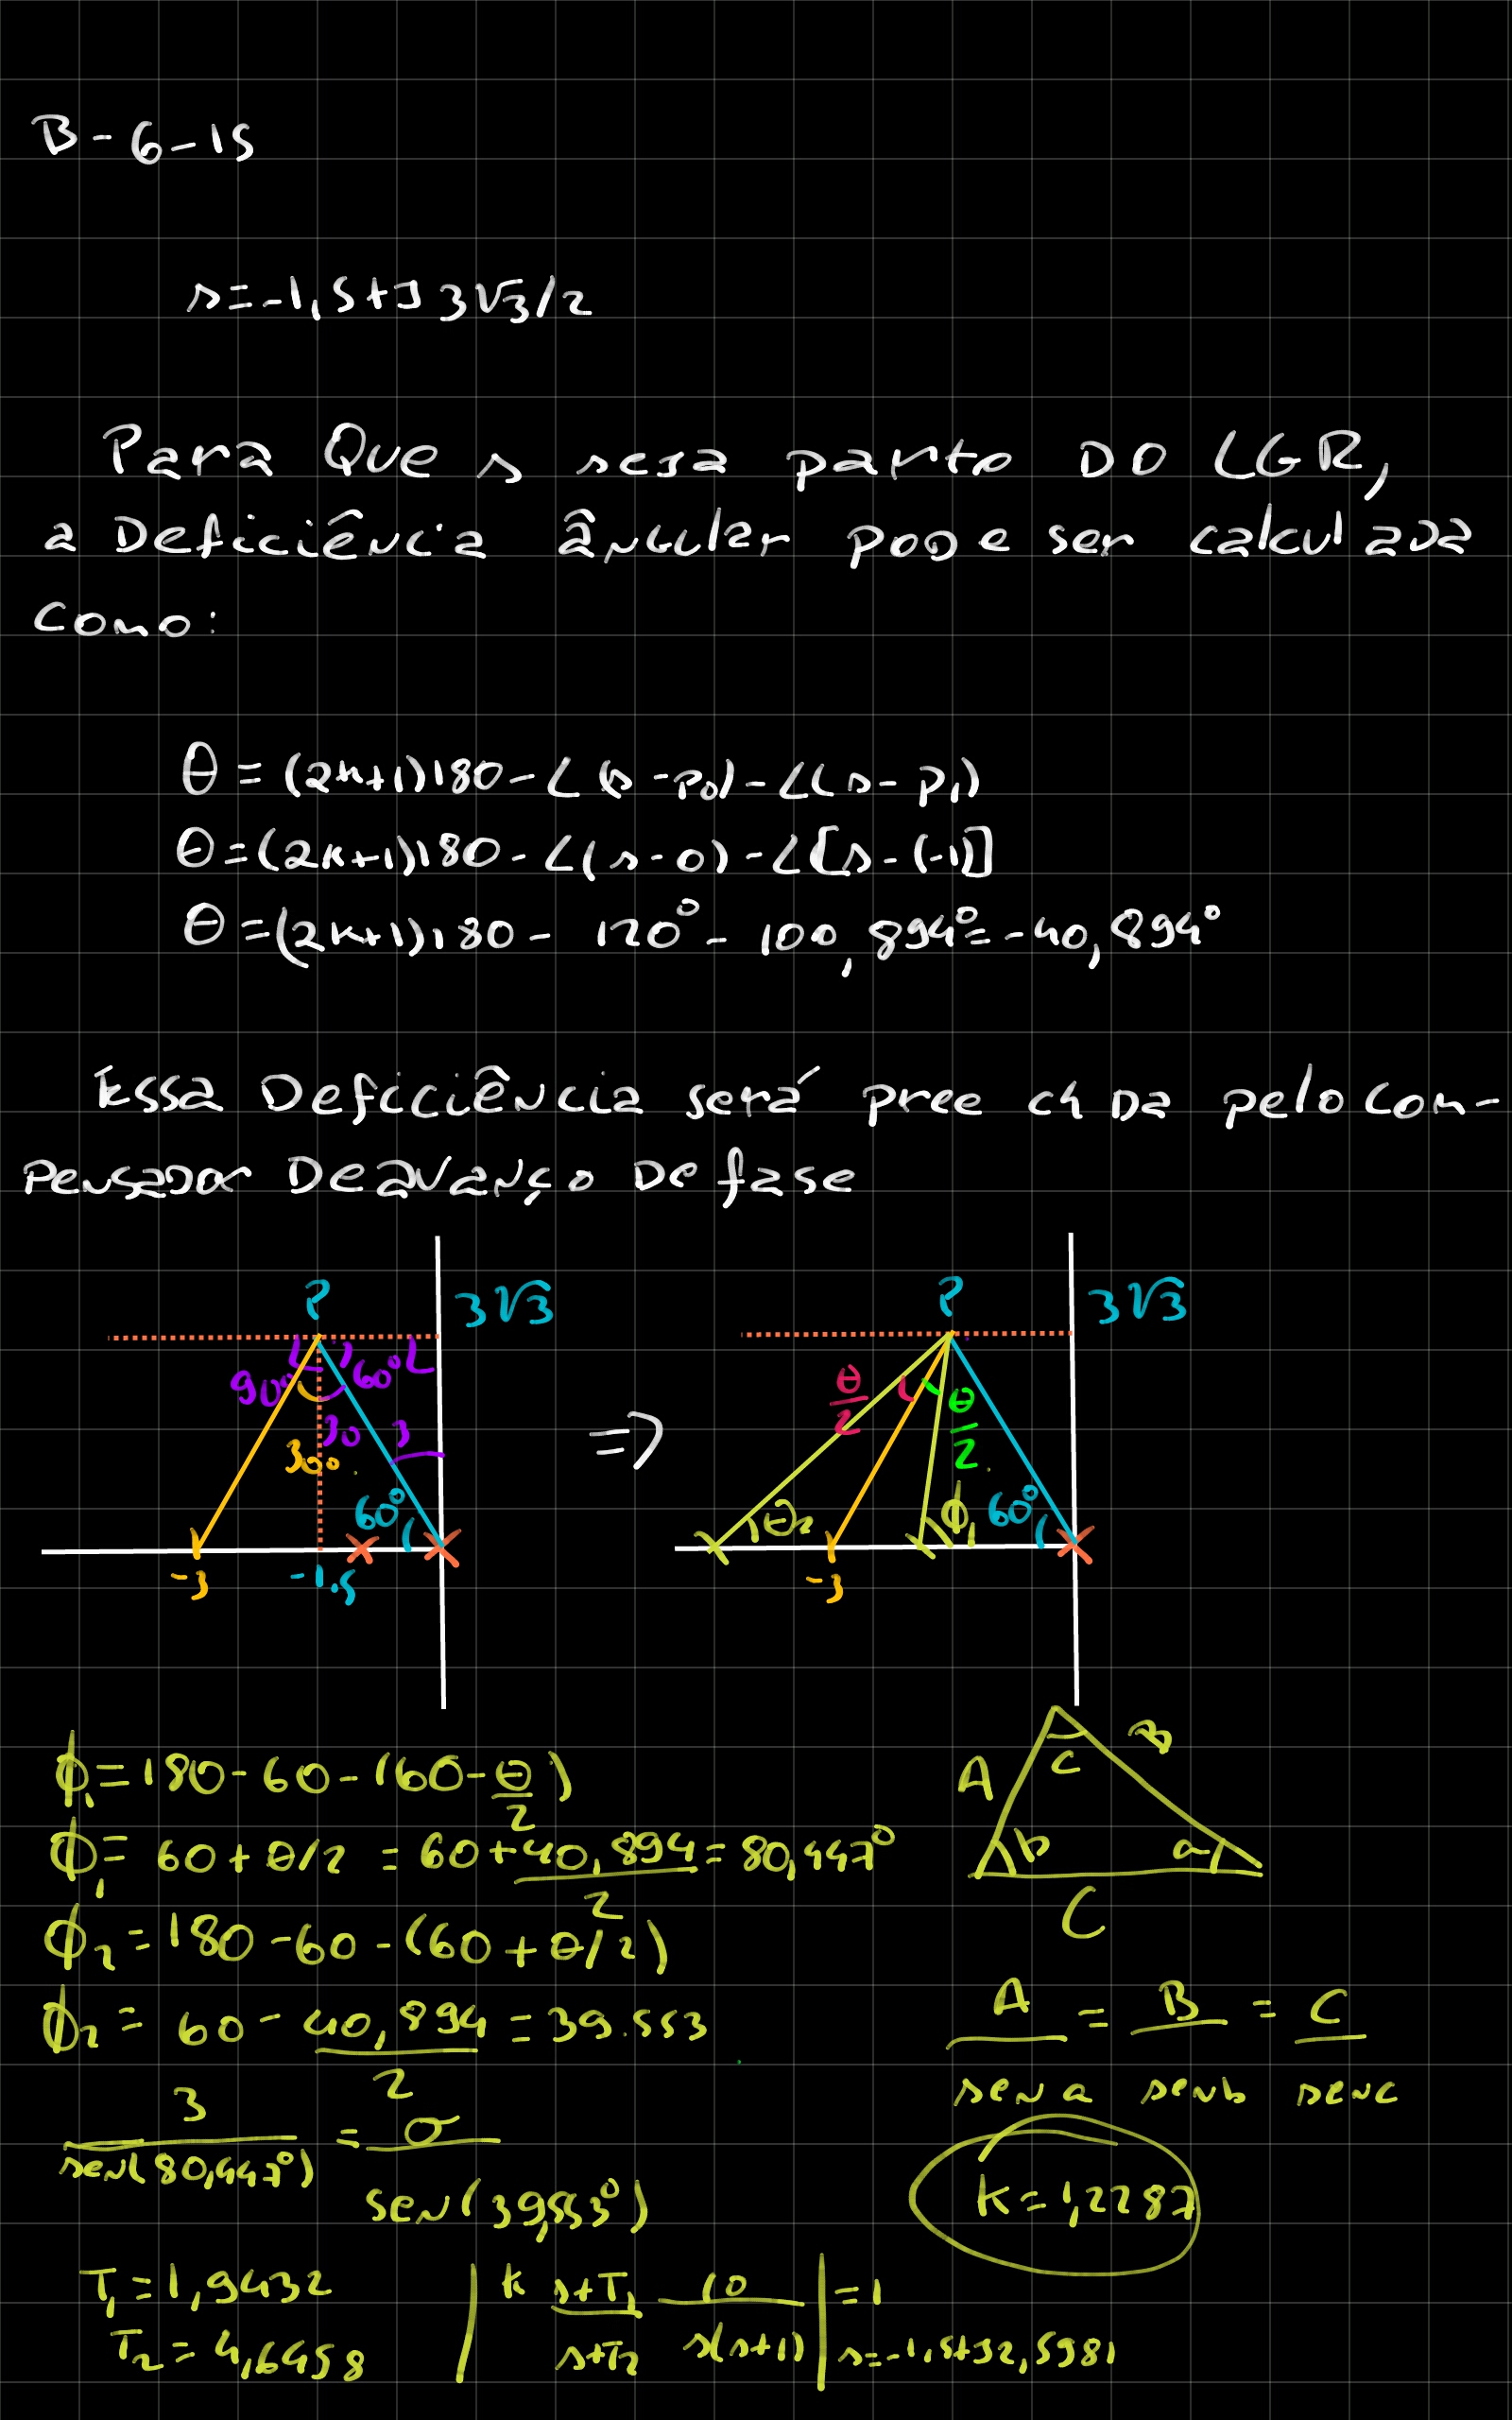 B-6-15
s=-1,5+J3√3/2
Para Que s seja parto DO LGR,
a Deficiência ângular pode ser calculada
Como:
θ = (2k+1)180-∠(s-p₀)-∠(s-p₁)
θ=(2k+1)180-∠(s-0)-∠[s-(-1)]
θ=(2k+1)180- 120°- 100,894°=-40,894°
Essa Deficiência será preechida pelo Com-
pensador De avanço De fase
P 3√3
90° 60°
30 3
30°
60°
-3 -1.5
=>
P 3√3
θ/2 θ/2
θ₂ ϕ₁ 60°
-3
ϕ₁=180-60-(60-θ/2)
ϕ₁= 60+θ/2 = 60+40,894/2=80,447°
ϕ₂=180-60-(60+θ/2)
ϕ₂= 60-40,894/2=39.553
3/sen(80,447°) = σ/sen(39,553°)
A B c
b a
C
A/sen a = B/sen b = C/sen c
k=1,2287
T₁=1,9432
T₂=4,6458
|k s+T₁/s+T₂ 10/s(s+1)|=1
s=-1,5+J2,5981